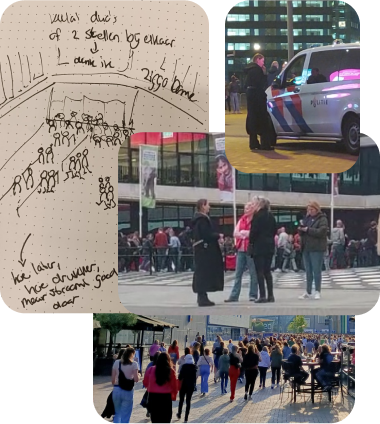 duo's
of 2 stellen bij elkaar
denk ik
Ziggo Dome
Hoe later,
hoe drukker,
maar stroomt goed
door
POLITIE